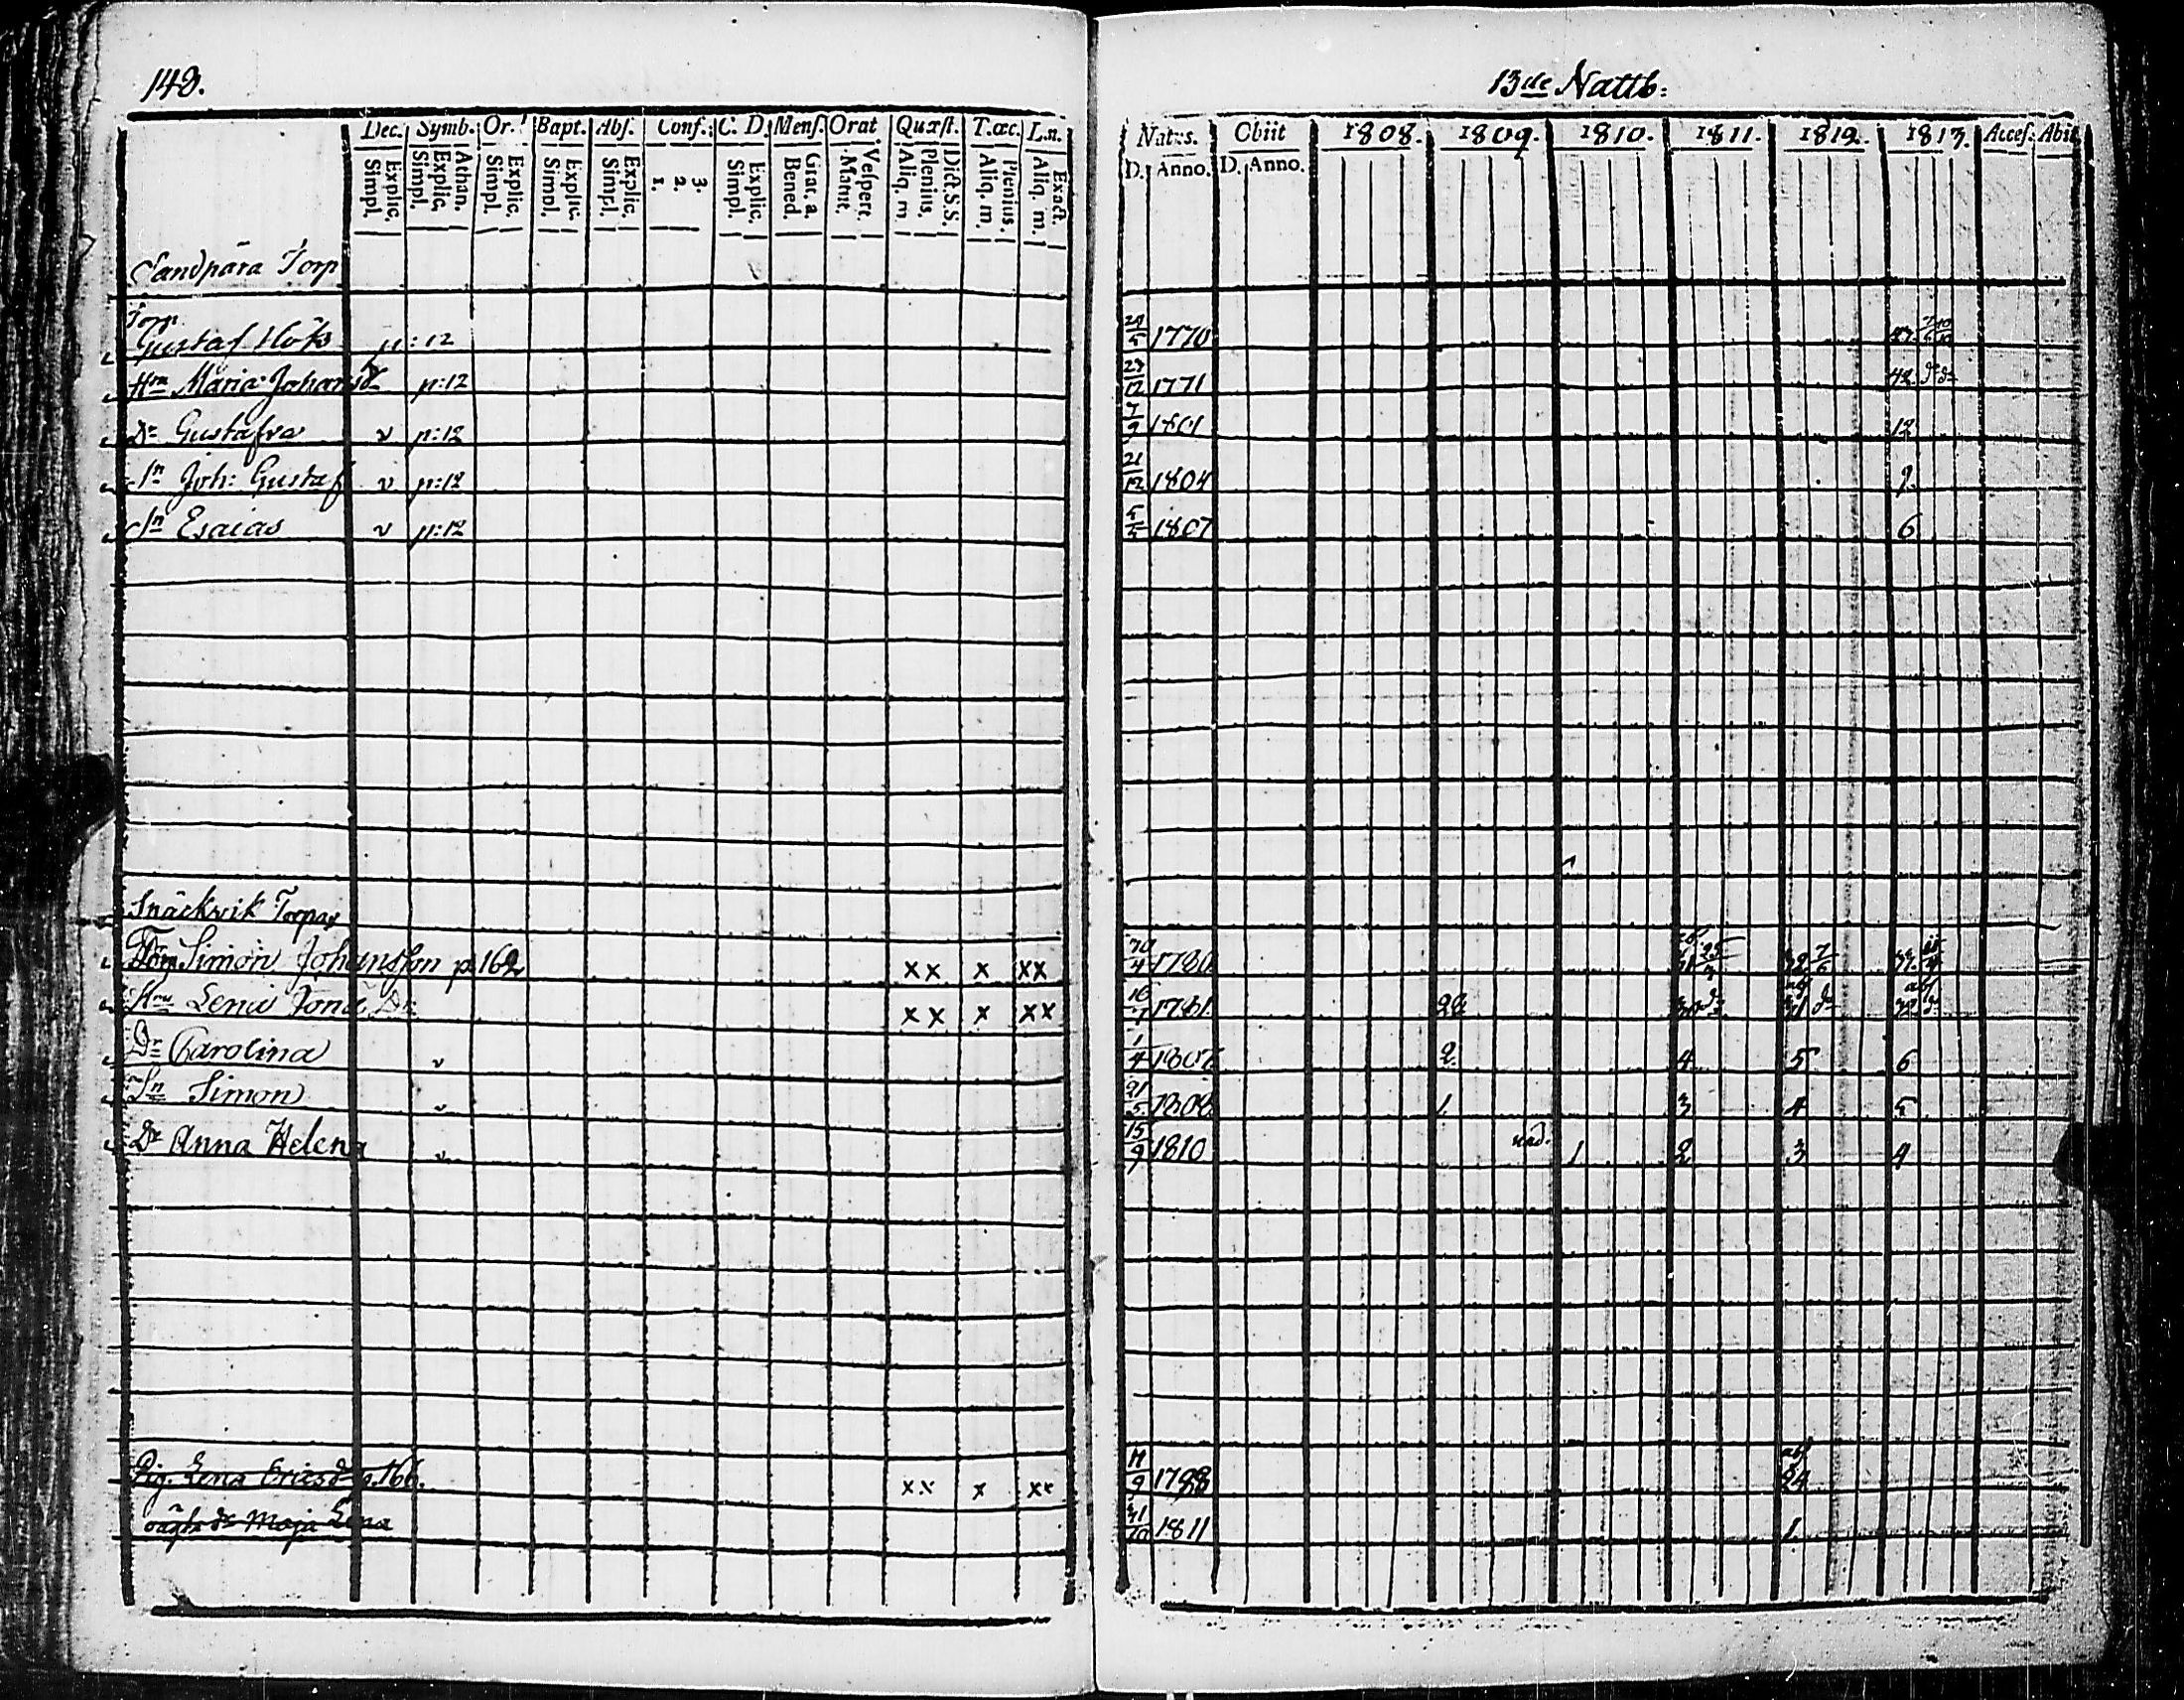 148.
Dec. Symb. Or. Bapt. Abs. Conf. C. D. Mens. Orat Quæst. T.œc. L.n.
Explic. Simpl. Athan. Explic. Simpl. Explic. Simpl. Explic. Simpl. Explic. Simpl. 3. 2. 1. Explic. Simpl. Grat. a. Bened. Vespert. Matut. Dict. S.S. Plenius. Aliq. m. Plenius. Aliq. m. Exact. Aliq. m.
Sandpära Torp
Torp.
Gustaf Höks p: 12
Hru Maria Johansd p:12
Dr Gustafva v p:12
Sn Joh: Gustaf v p:12
Sn Esaias v p:12
Snäckvik Torpar
Simon Johansson p.162 xx x xx
Hru Lena Jona Dr xx x xx
Dr Carolina v
Sn Simon v
Dr Anna Helena v
Pig. Lena Ericsd p.166. xx x xx
oägta dr Maja Lena
13de Nattb:
Natus. Obiit 1808. 1809. 1810. 1811. 1812. 1813. Acces. Abiit
D. Anno. D. Anno.
1770
23/12 1771 42 do do
7/9 1801 12
21/12 1804 9
1807 6
1780
16 1781
1/4 1807 2 4 5 6
21/5 1808 1 3 4 5
15/9 1810 1 2 3 4
1788 24
1811 1